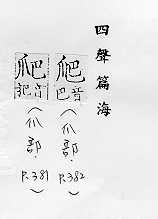 四聲篇海
爬 音巴 (爪部. P.382)
爬 音 (爪部. P.381)